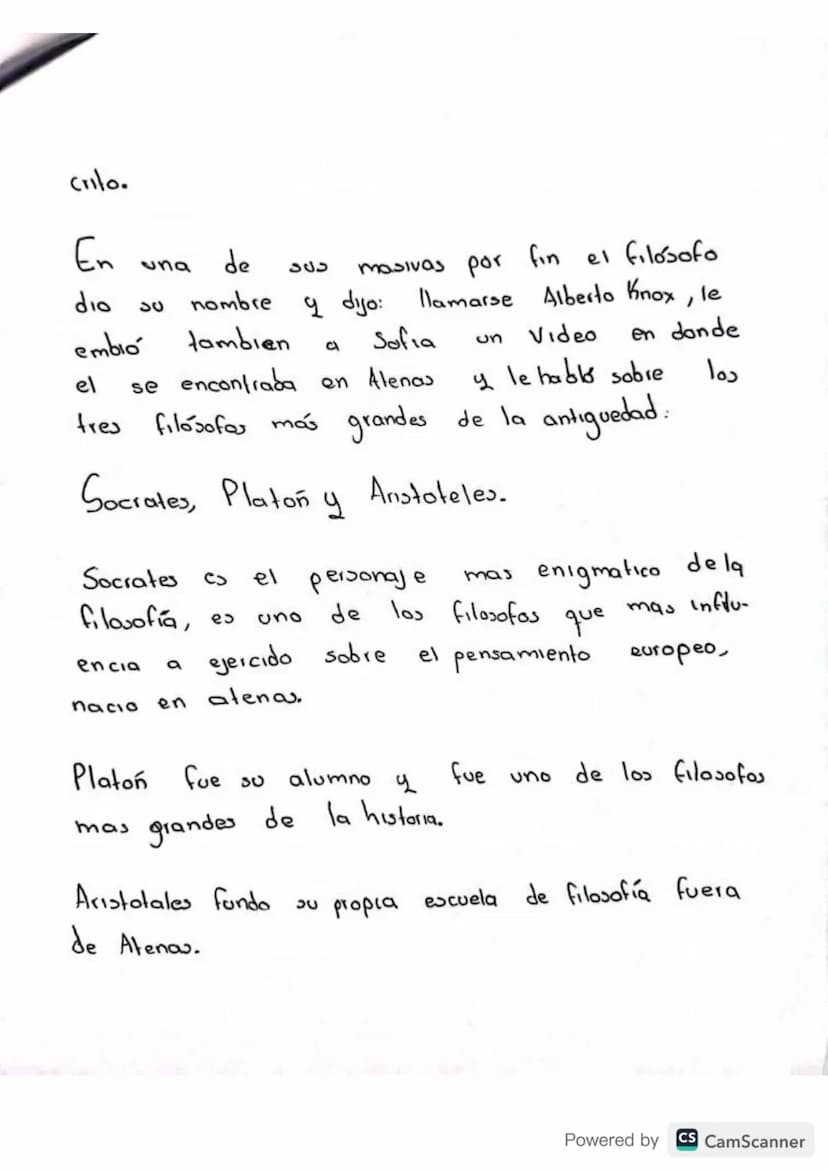 crito.
En una de sus masivas por fin el filósofo
dio su nombre y dijo: llamarse Alberto Knox, le
embió tambien a Sofia un Video en donde
el se encontraba en Atenas y le habló sobre los
tres filósofos más grandes de la antiguedad:
Socrates, Platoñ y Aristoteles.
Socrates es el personaje mas enigmatico de la
filosofía, es uno de los filosofos que mas influ-
encia a ejercido sobre el pensamiento europeo,
nacio en atenas.
Platoñ fue su alumno y fue uno de los filosofos
mas grandes de la historia.
Aristotales fundo su propia escuela de filosofía fuera
de Atenas.
Powered by CS CamScanner